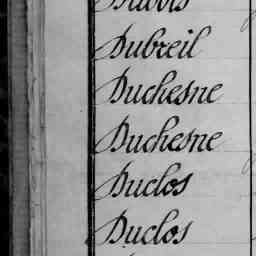 Dubreil
Duchesne
Duchesne
Duclos
Duclos